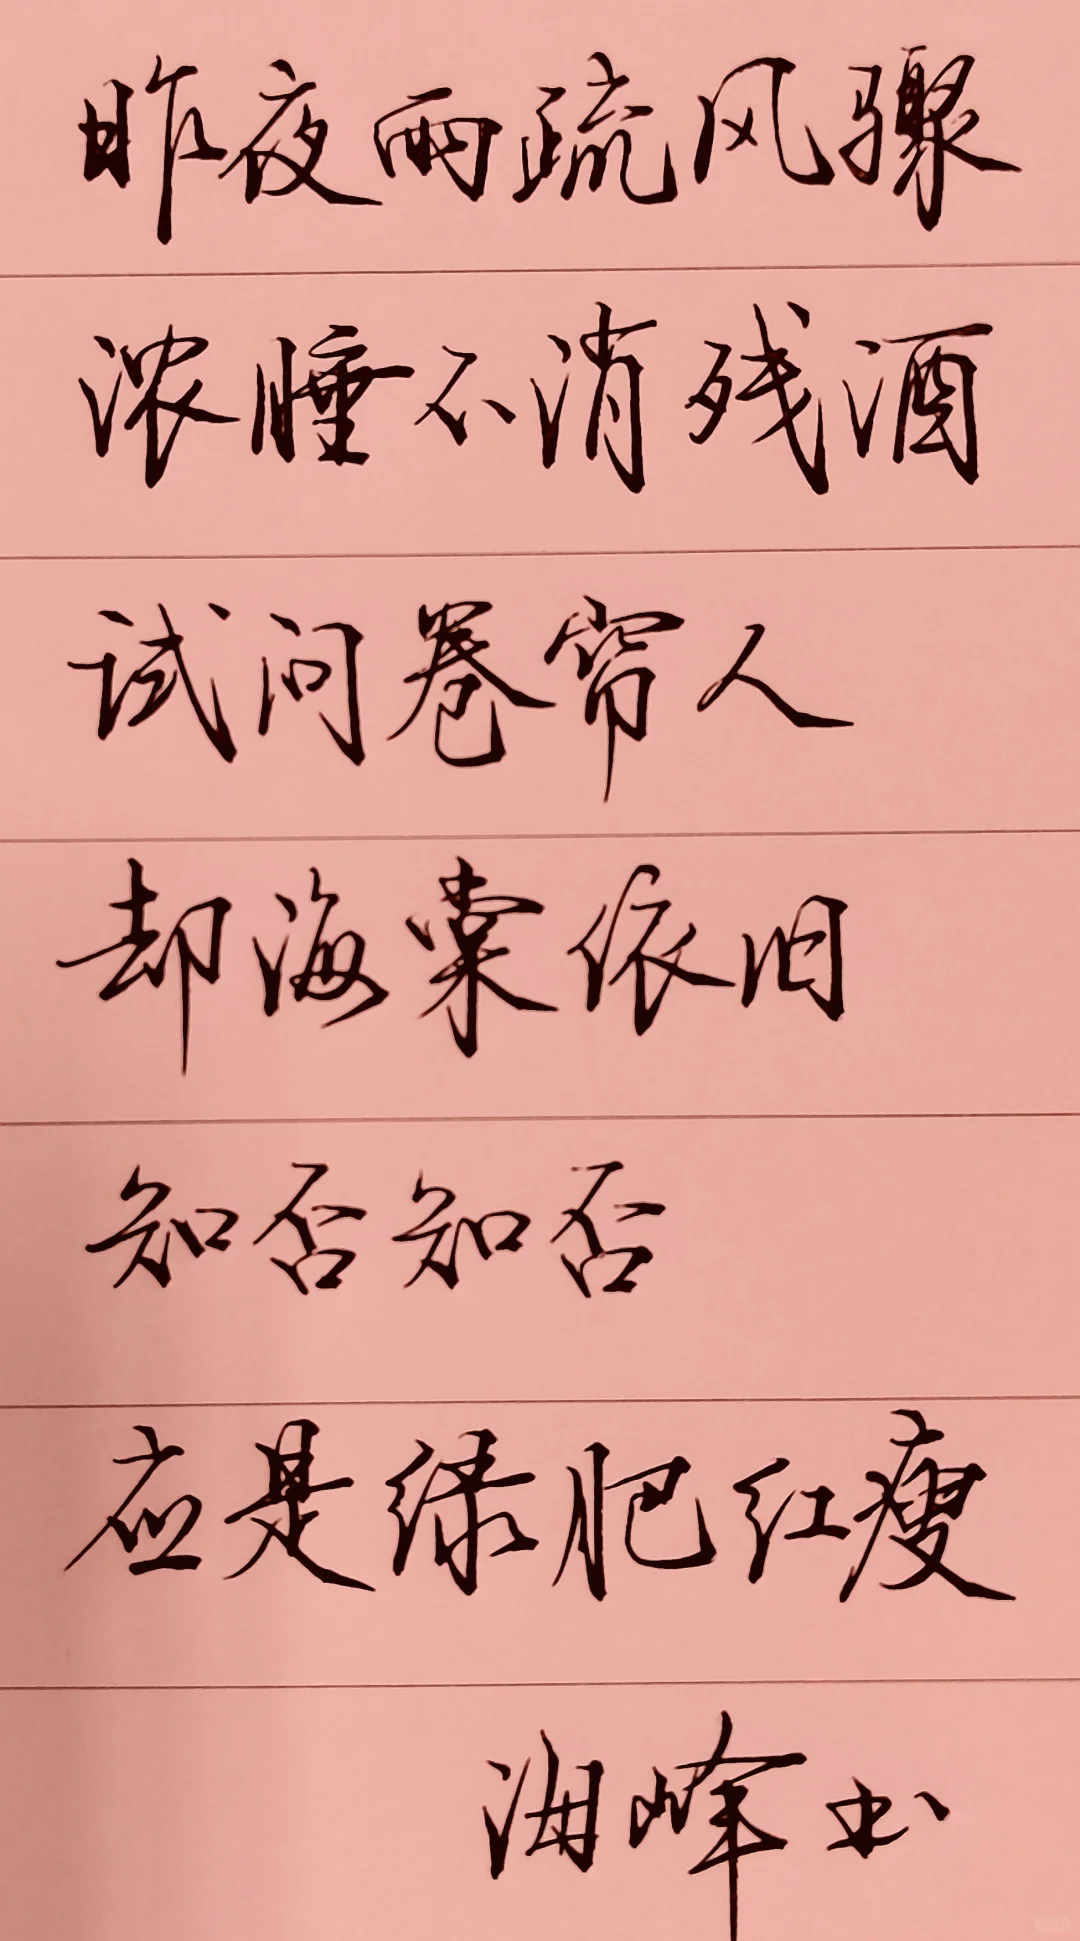 昨夜雨疏风骤
浓睡不消残酒
试问卷帘人
却海棠依旧
知否知否
应是绿肥红瘦
海峰书